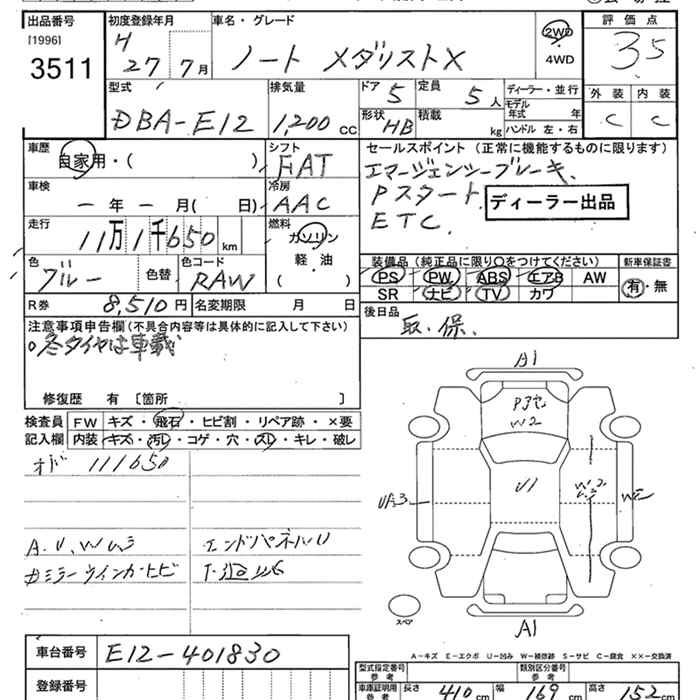 出品番号
[1996]
3511
初度登録年月
H 27 7月
車名・グレード
ノート メダリストX
2WD
4WD
評価点
3.5
型式
DBA-E12
排気量
1,200 CC
ドア 5
定員 5人
形状 HB
積載 kg
ディーラー・並行
モデル年式 年
ハンドル 左・右
外装 内装
C C
車歴
自家用・( )
シフト
FAT
セールスポイント (正常に機能するものに限ります)
エマージェンシーブレーキ、
Pスタート
ETC.
ディーラー出品
車検
ー年ー月( 日)
冷房
AAC
走行
11万1千650km
燃料
ガソリン
軽・油
( )
色
ブルー
色替
色コード
RAW
装備品 (純正品に限り○をつけてください)
PS PW ABS エアB AW
SR ナビ TV カワ
新車保証書
有・無
R券 8,510円
名変期限 月 日
後日品
取.保.
注意事項申告欄(不具合内容等は具体的に記入して下さい)
○冬タイヤは車載
修復歴 有 〔箇所 〕
検査員
記入欄
FW キズ・飛石・ヒビ割・リペア跡・×要
内装 キズ・汚レ・コゲ・穴・スレ・キレ・破レ
オド 111650
A.U.W
エンドパネルU
ミラーウインカーヒビ
A1
W2
U1
W2
A1
スペア
A-キズ E-エクボ U-凹み W-補修跡 S-サビ C-腐食 ××-交換済
車台番号
E12-401830
登録番号
型式指定番号
参考
類別区分番号
参考
車庫証明用
参考
長さ 410cm
幅 169cm
高さ 152cm